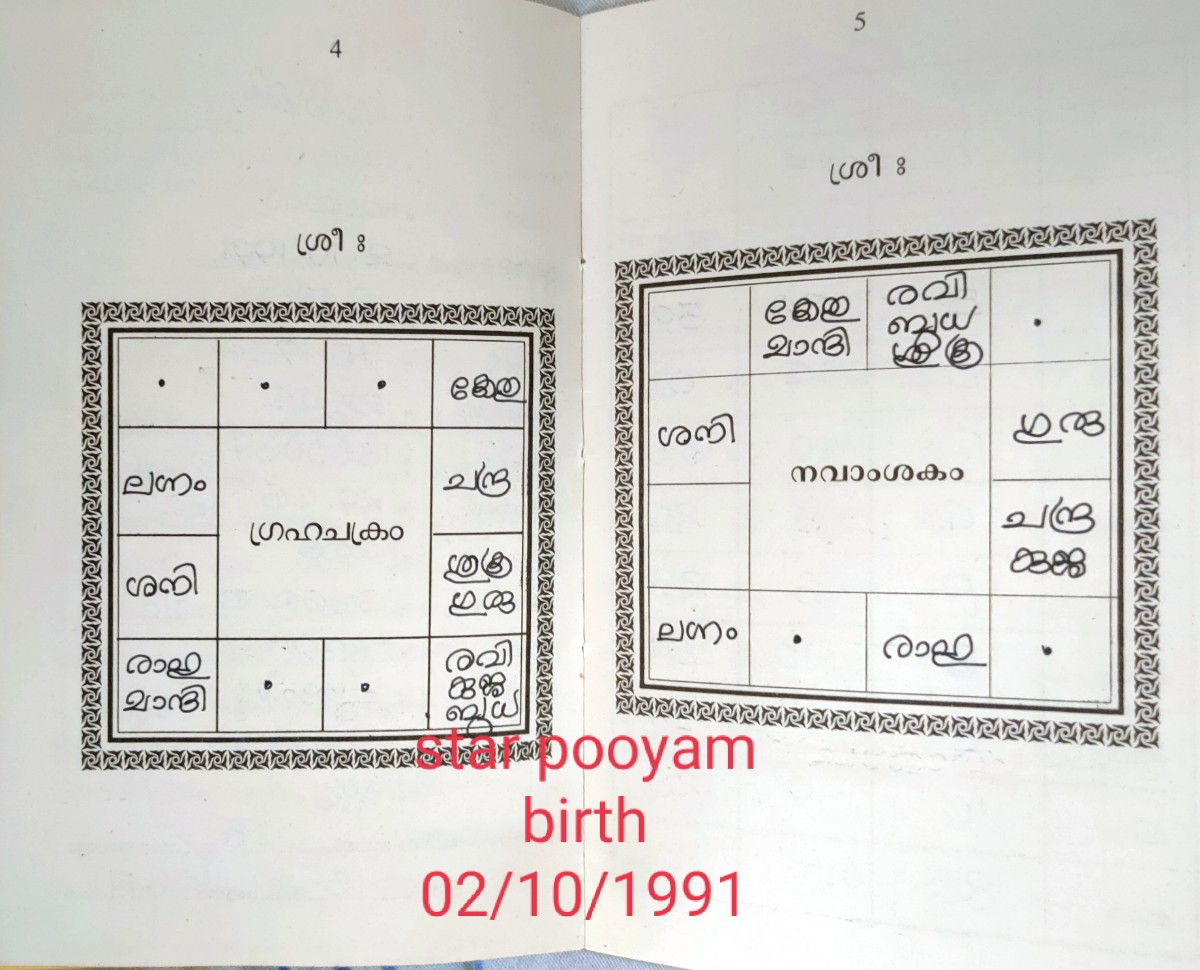 4
ശ്രീഃ
കേതു
ലഗ്നം
ചന്ദ്ര
ഗ്രഹചക്രം
ശനി
ശുക്ര
ഗുരു
രാഹു
മാന്ദി
രവി
കുജ
ബുധ
5
ശ്രീഃ
കേതു
മാന്ദി
രവി
ബുധ
ശുക്ര
ശനി
ഗുരു
നവാംശകം
ചന്ദ്ര
കുജ
ലഗ്നം
രാഹു
star pooyam
birth
02/10/1991